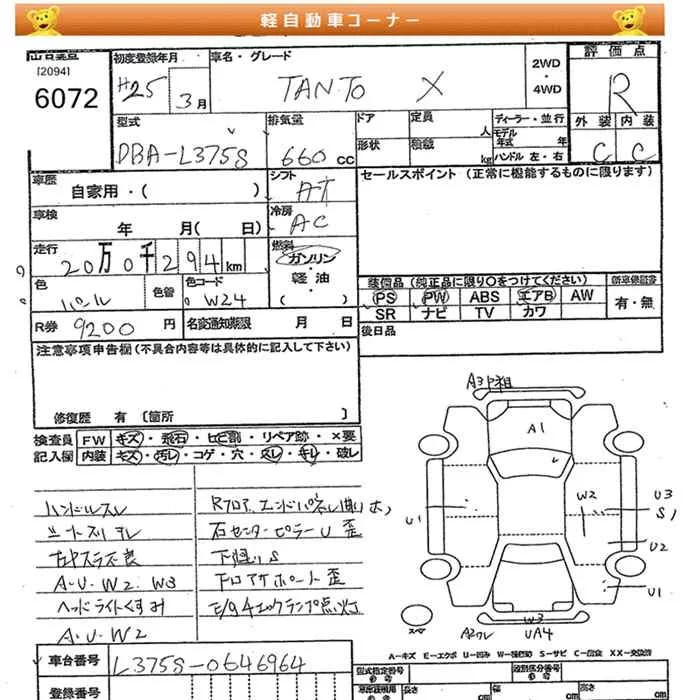 軽自動車コーナー
[2094]
6072
初度登録年月
H25 3月
車名・グレード
TANTO X
2WD
・
4WD
評価点
R
外装 内装
C C
型式
DBA-L375S
排気量
660 cc
ドア
形状
定員 人
積載 kg
ディーラー・並行
モデル年式 年
ハンドル 左・右
車歴
自家用・( )
シフト
AT
冷房
AC
車検
年 月( 日)
走行
20万0千294km
燃料
ガソリン
・
軽油
( )
色
パール
色替
色コード
W24
R券 9200 円
名変通知期限 月 日
セールスポイント (正常に機能するものに限ります)
装備品 (純正品に限り○をつけてください)
新車保証書
PS PW ABS エアB AW
SR ナビ TV カワ
有・無
後日品
注意事項申告欄(不具合内容等は具体的に記入して下さい)
修復歴 有 [箇所 ]
検査員記入欄
FW キズ・飛石・ヒビ割・リペア跡・×要
内装 キズ・汚レ・コゲ・穴・スレ・キレ・破レ
ハンドルスレ
シートスリキレ
左Pスラ不良
A・U・W2・W3
ヘッドライトくすみ
A・U・W2
Rフロア、エンドパネル曲り ホ,
右センターピラー U 歪
下廻り S
下回りサポート 歪
E/g4エックランプ点灯
A3P相
A1
U1
W2
U3
S,
U2
U1
W3
A2ワレ
UA4
スペア
A-キズ E-エクボ U-凹み W-補修跡 S-サビ C-腐食 XX-交換済
車台番号
L375S-0646964
登録番号
型式指定番号
類別区分番号
長さ cm
幅 cm
高さ cm